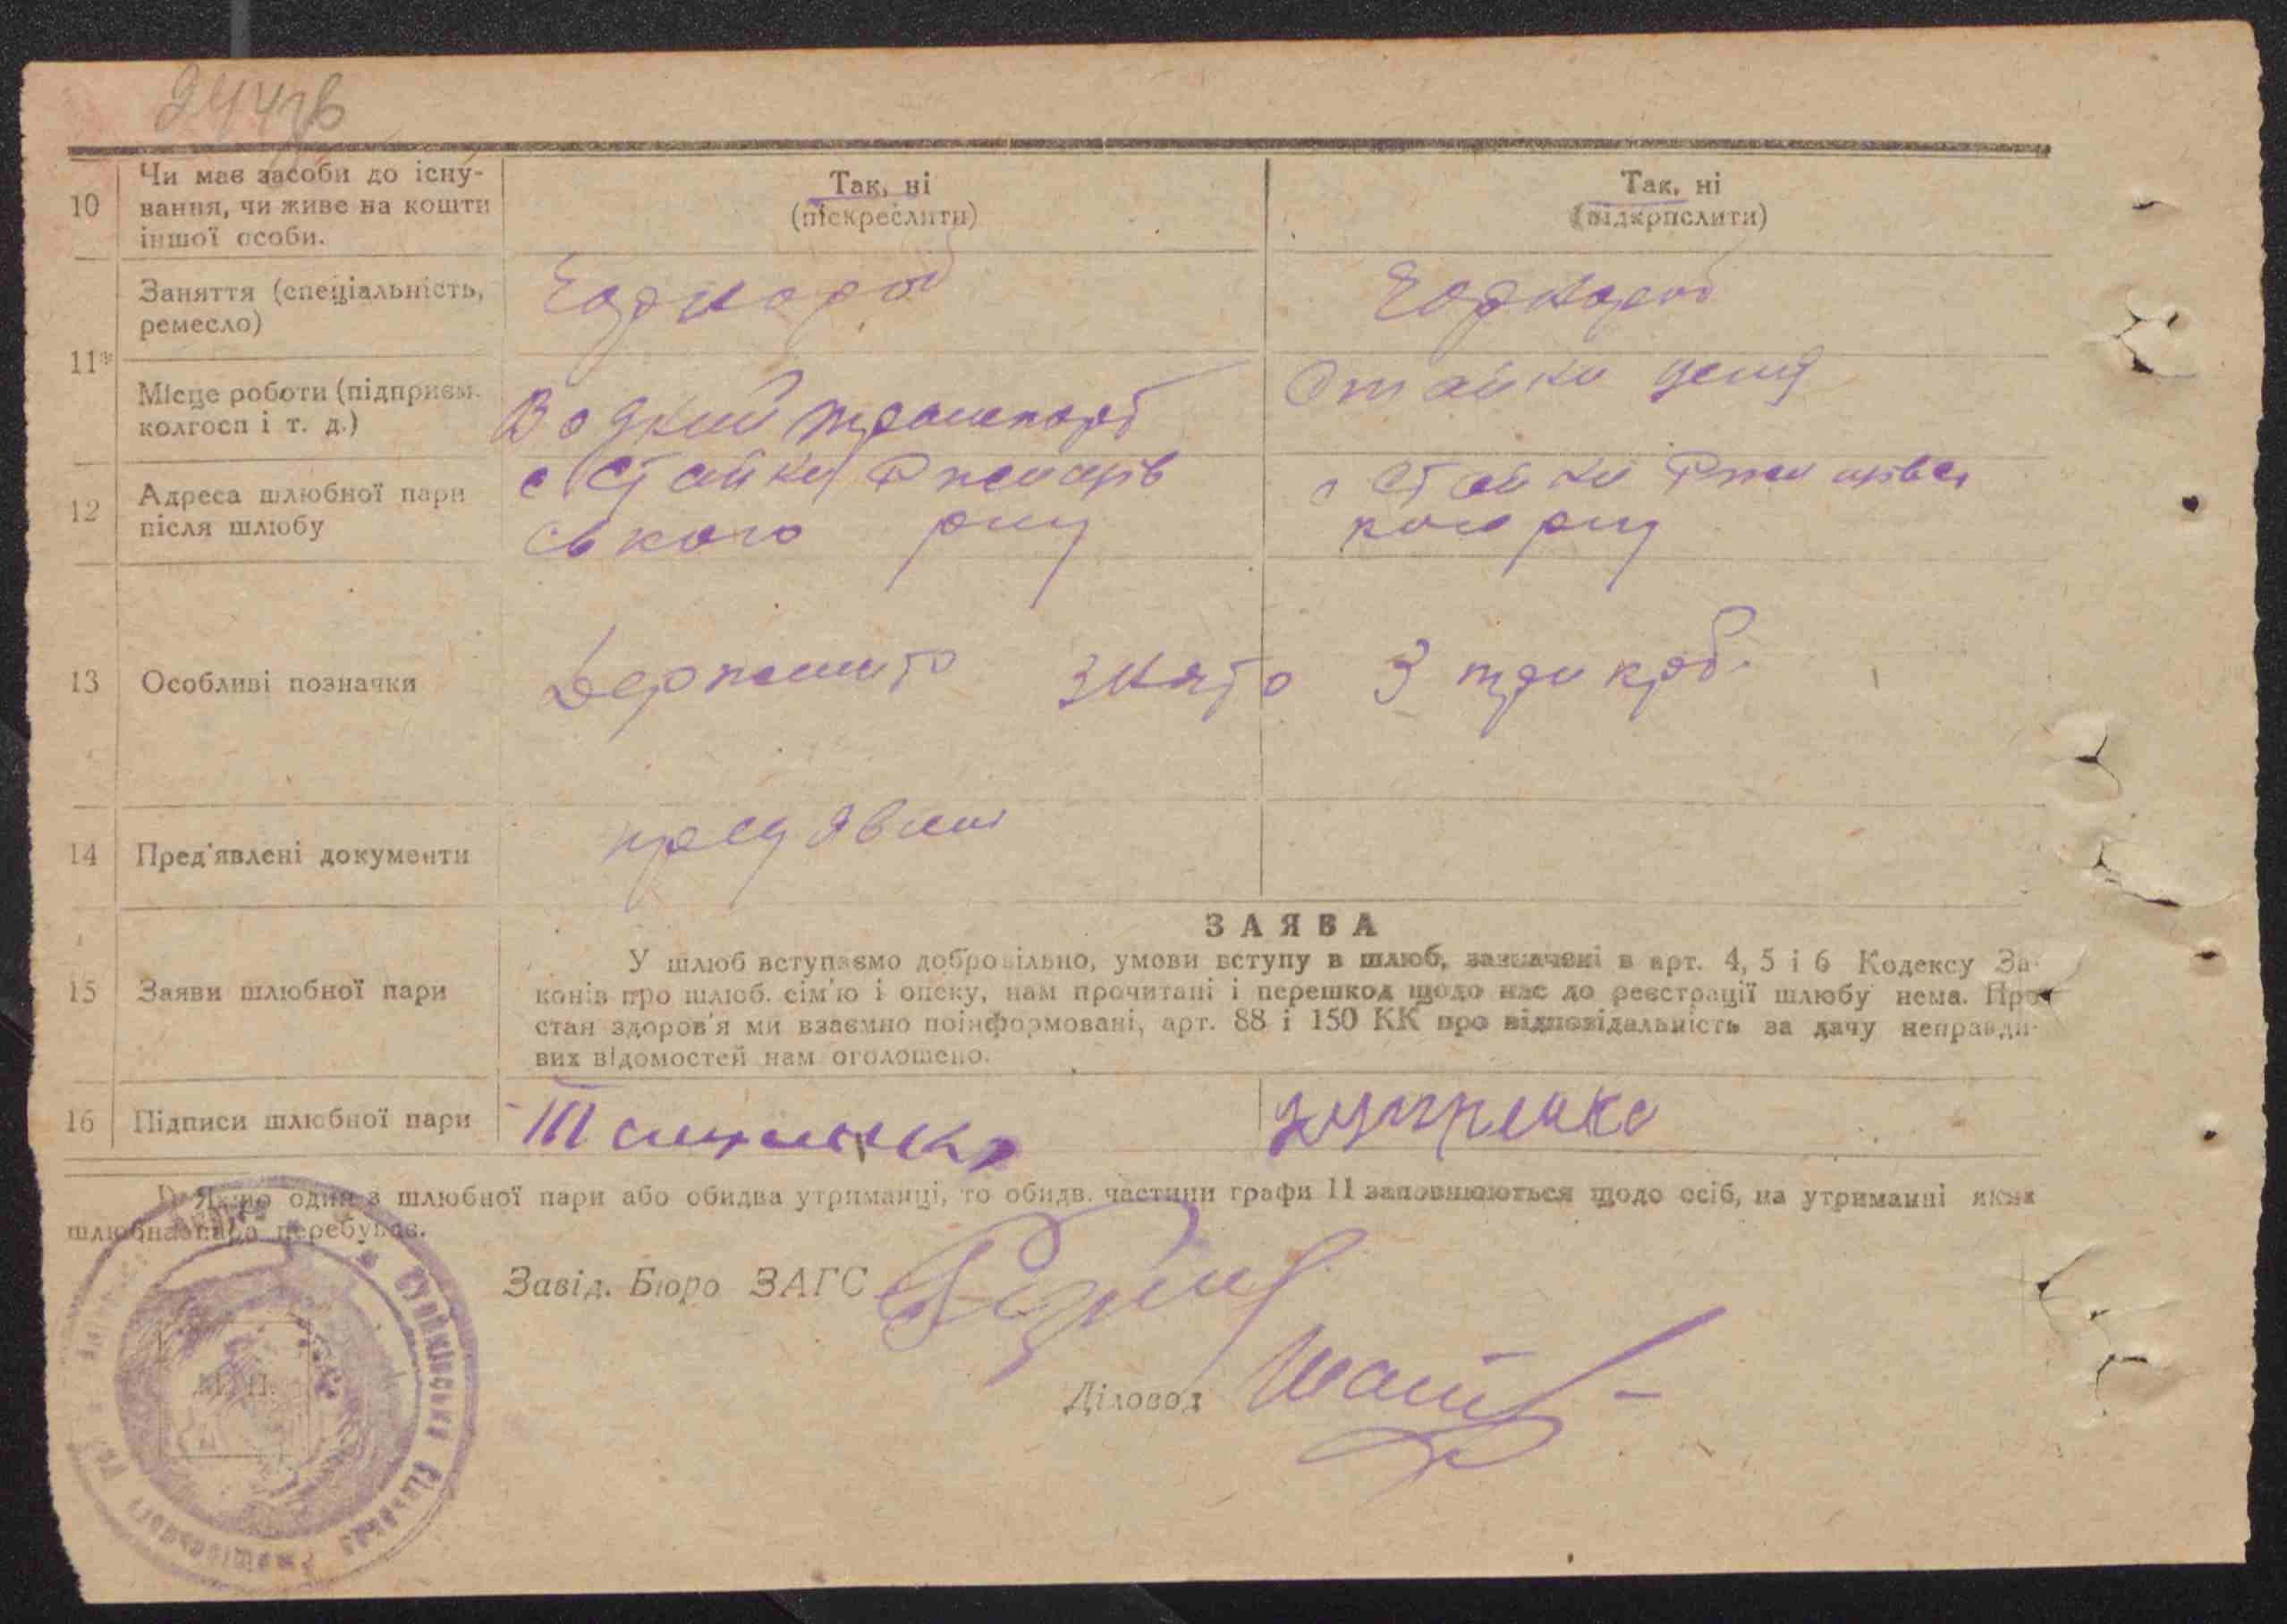 244зв
10
Чи має засоби до існу-
вання, чи живе на кошти
іншої особи.
Так, ні
(піскреслити)
Так, ні
(підкрпслити)
11*
Заняття (спеціальність,
ремесло)
Чорнороб
Чорнороб
Місце роботи (підприєм.
колгосп і т. д.)
Водний транспорт
Стайки
12
Адреса шлюбної пари
після шлюбу
с Стайки Ржищів
ського рну
с Стайки Ржищівсь
кого рну
13
Особливі позначки
Держмито знято 3 три крб.
14
Пред'явлені документи
пред явлені
15
Заяви шлюбної пари
ЗАЯВА
У шлюб вступаємо добровільно, умови вступу в шлюб, зазначені в арт. 4, 5 і 6 Кодексу За-
конів про шлюб. сім'ю і опеку, нам прочитані і перешкод щодо нас до реєстрації шлюбу нема. Про
стан здоров'я ми взаємно поінформовані, арт. 88 і 150 КК про відповідальність за дачу неправди-
вих відомостей нам оголошено.
16
Підписи шлюбної пари
1) Якщо один з шлюбної пари або обидва утриманці, то обидв. частини графи 11 заповнюються щодо осіб, на утриманні яких
шлюбна пара перебуває.
Завід. Бюро ЗАГС
Діловод
М. П.